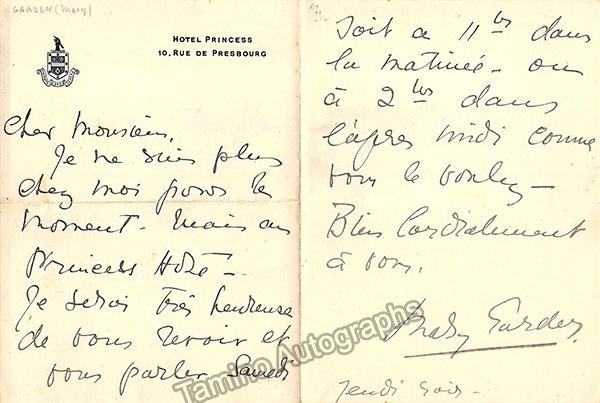 GARDEN (Mary)
HOTEL PRINCESS
10, RUE DE PRESBOURG
Cher Monsieur,
Je ne suis plus
chez moi pour le
moment. Mais au
Princess Hotel –
Je serai très heureuse
de vous revoir et
vous parler Samedi
Soit a 11 hrs dans
la matinée – ou
à 2 hrs dans
l'après midi comme
vous le voulez –
Bien Cordialement
à vous.
Mary Garden
Jeudi Soir –
Tamino Autographs